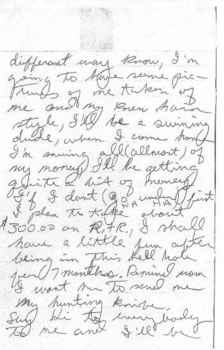 different way know, I'm
going to have some pic-
tures of me taken of
me and my new hair
style, I'll be a swinging
dude, when I come home
I'm saving all (allmost) of
my money I'll be getting
quite a bit of money
if I don't
I plan to take about
$300.00 on R.+R., I shall
have a little fun after
being in this hell hole
for 7 months. Remind mom
I want her to send me
my hunting knife.
Say hi to everybody
to me and I'll be